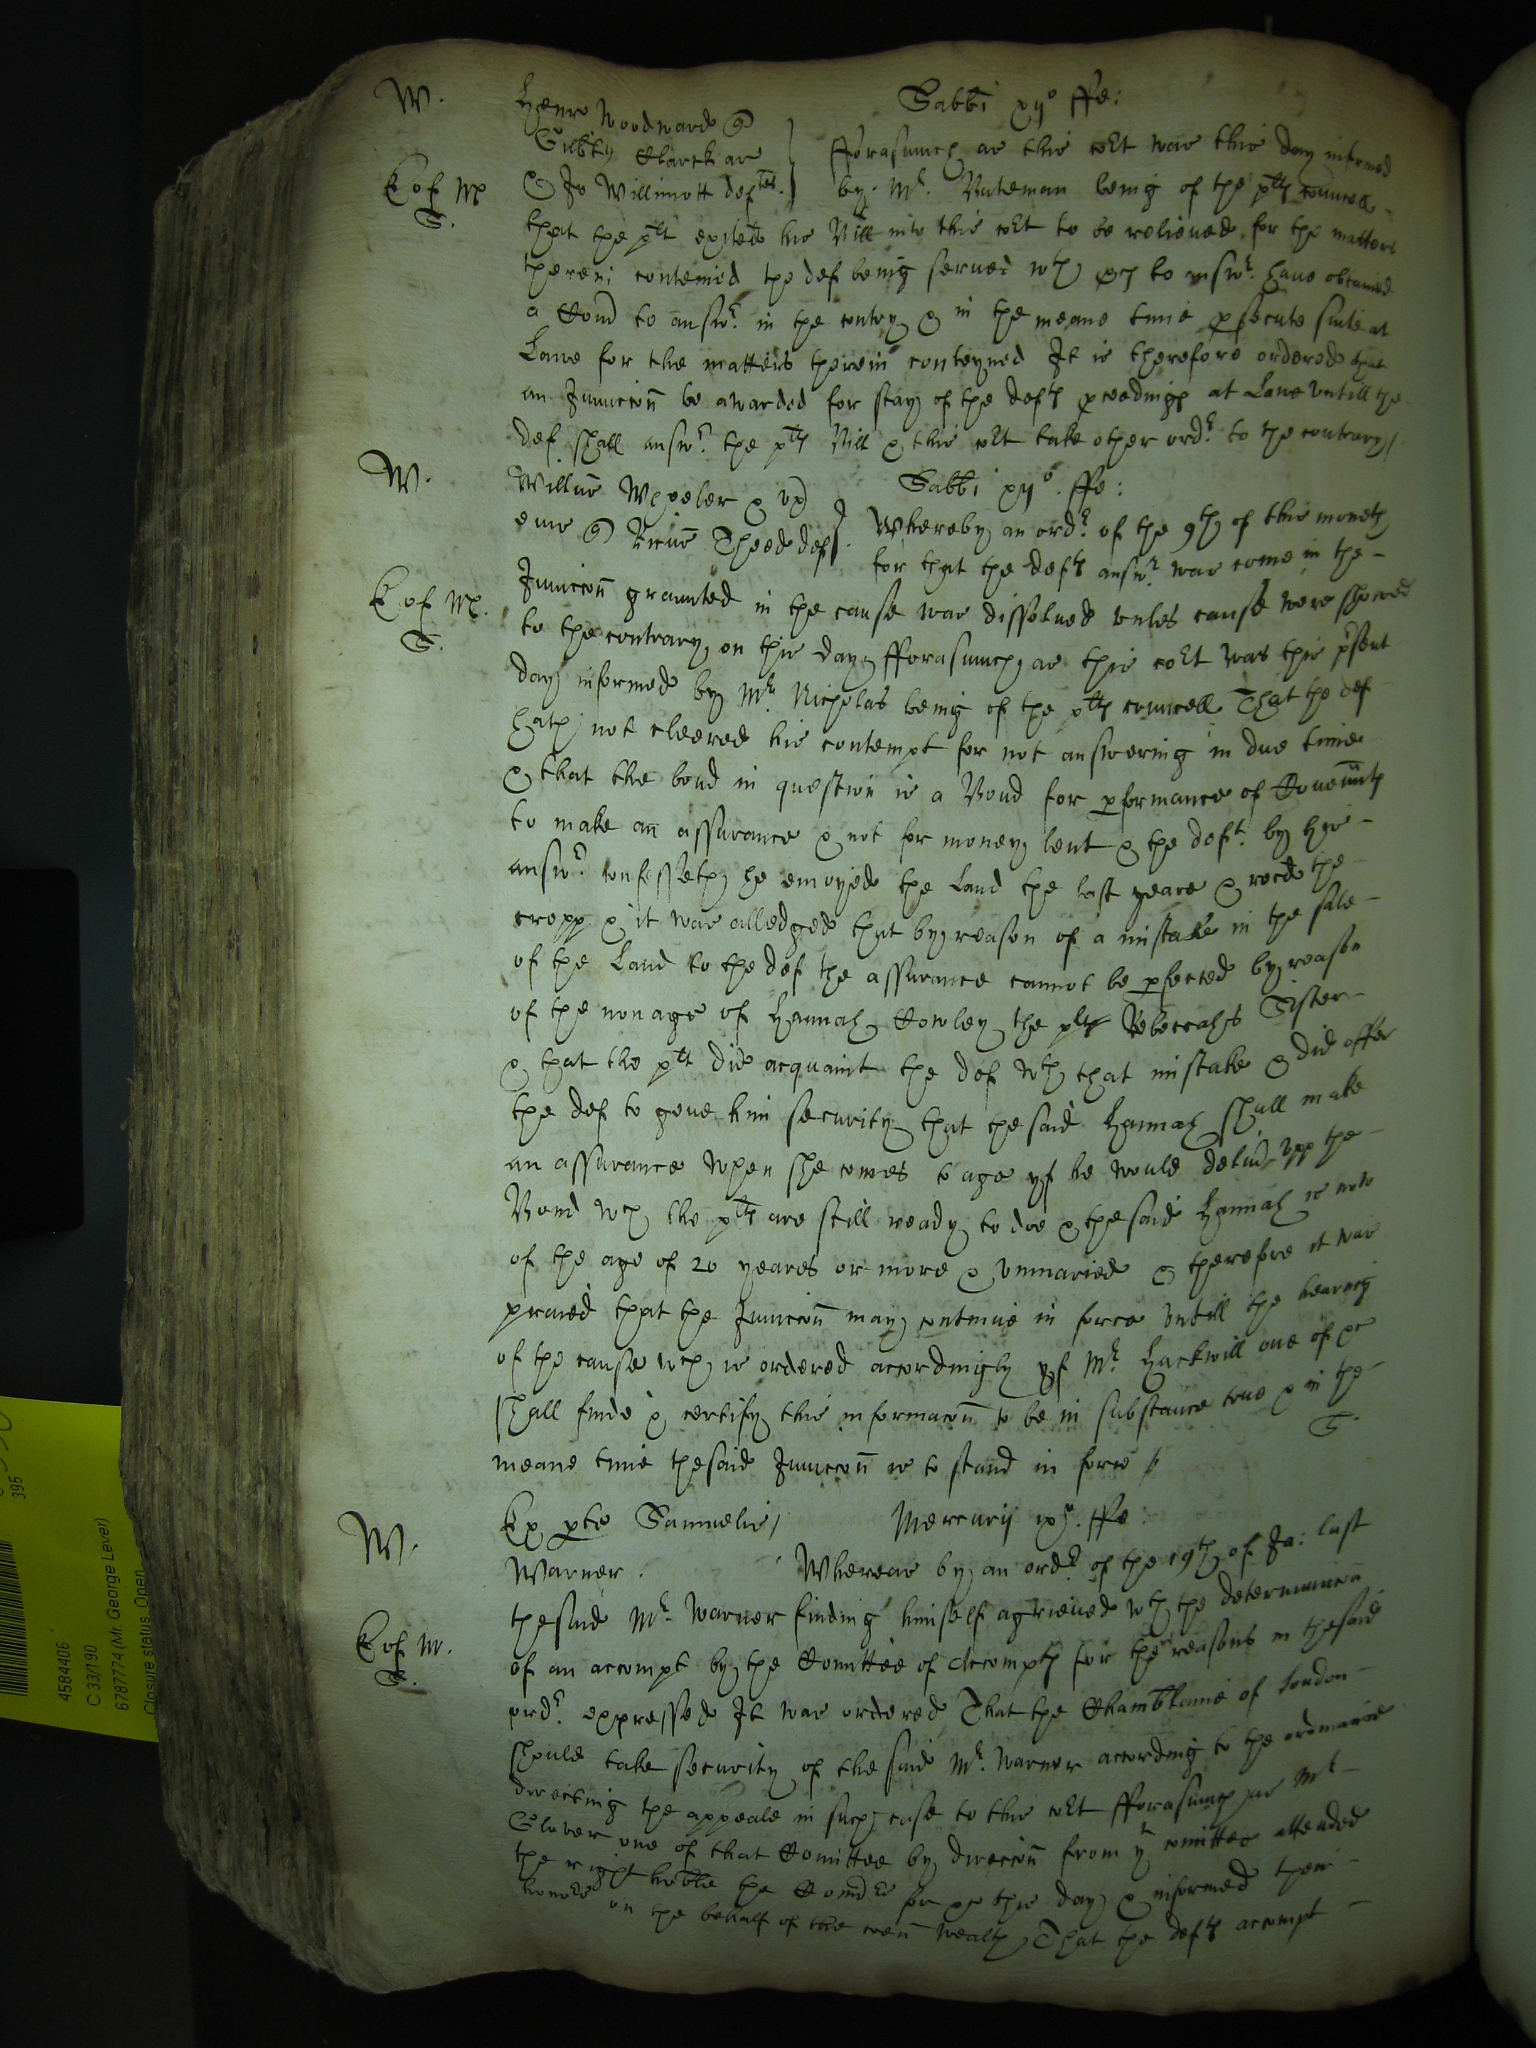 W.
Sabbi xijo ffe:
Henr Woodward &
Gilbt Clarck ar
fforasmuch as this Co:rt was this day informed
E of M
S.
& Jo Willimott deftes.
by Mr. Bateman being of the plts councell
that the plt exited his Bill into this co:rt to be relieued for the matters
therein conteined the def being serued wth to answr. haue obtained
a Comd to answr. in the contry & in the meane time psecute suite at
Lawe for the matters therein conteyned It is therefore ordered that
an Iniuccon be awarded for stay of the defts pceedings at Lawe vntill the
def shall answr the plts Bill & this co:rt take other ordr to the contrary/
W.
Sabbi xijo. ffe:
Willm Wheeler & vx
Whereby an ordr. of the 9th of this moneth
Theed def
for that the defts answr. was come in the
E of M.
S.
Iniuccon graunted in the cause was dissolued vnles cause were shewed
to the contrary on this day, fforasmuch as this co:rt was this psent
day informed by Mr. Nicholas being of the plts councell That the def
hath not cleered his contempt for not answering in due time
& that the bond in question is a Bond for pformance of Couennts
to make an assurance & not for money lent & the deft. by his
answr. confesseth he enioyed the Land the last yeare & recd the
cropp & it was alledged that by reason of a mistake in the sale
of the Land to the def the assurance cannot be pfected by reason
of the nonage of Hannah Cowley the plts Rebeccah's Sister
& that the plt did acquaint the def wth that mistake & did offer
the def to geue him security that the said Hannah shall make
an assurance when she comes to age yf he would deliu vpp the
Bond wch the plts are still ready to doe & the said Hannah is now
of the age of 20 yeares or more & vnmaried & therefore it was
praied that the Iniuccon may continue in force vntill the hearing
of the cause wch is ordered accordingly yf Mr. Hackwill one of &c
shall finde & certify this informacon to be in substance true & in the
S.
meane time the said Iniuccon is to stand in force /
W.
Ex pte Samuelis
Mercurij ixo. ffe:
Warner.
Whereas by an ordr. of the 19th of Ja: last
the said Mr. Warner finding himself agrieued wth the determinacon
E of M.
S.
of an accompt by the Comittee of Accompts for the reasons in the said
ordr. expressed It was ordered That the Chambltaine of London
should take security of the said Mr. Warner according to the ordinance
directing the appeale in such case to this co:rt fforasmuch as Mr
Glover one of that Comittee by direccon from ye comittee attended
the right hoble the Comrs for &c this day & informed their
honors on the behalf of the comon wealth That the defts accompt
4584406
395
C 33/190
6787774 (Mr. George Lever)
Closure status Open